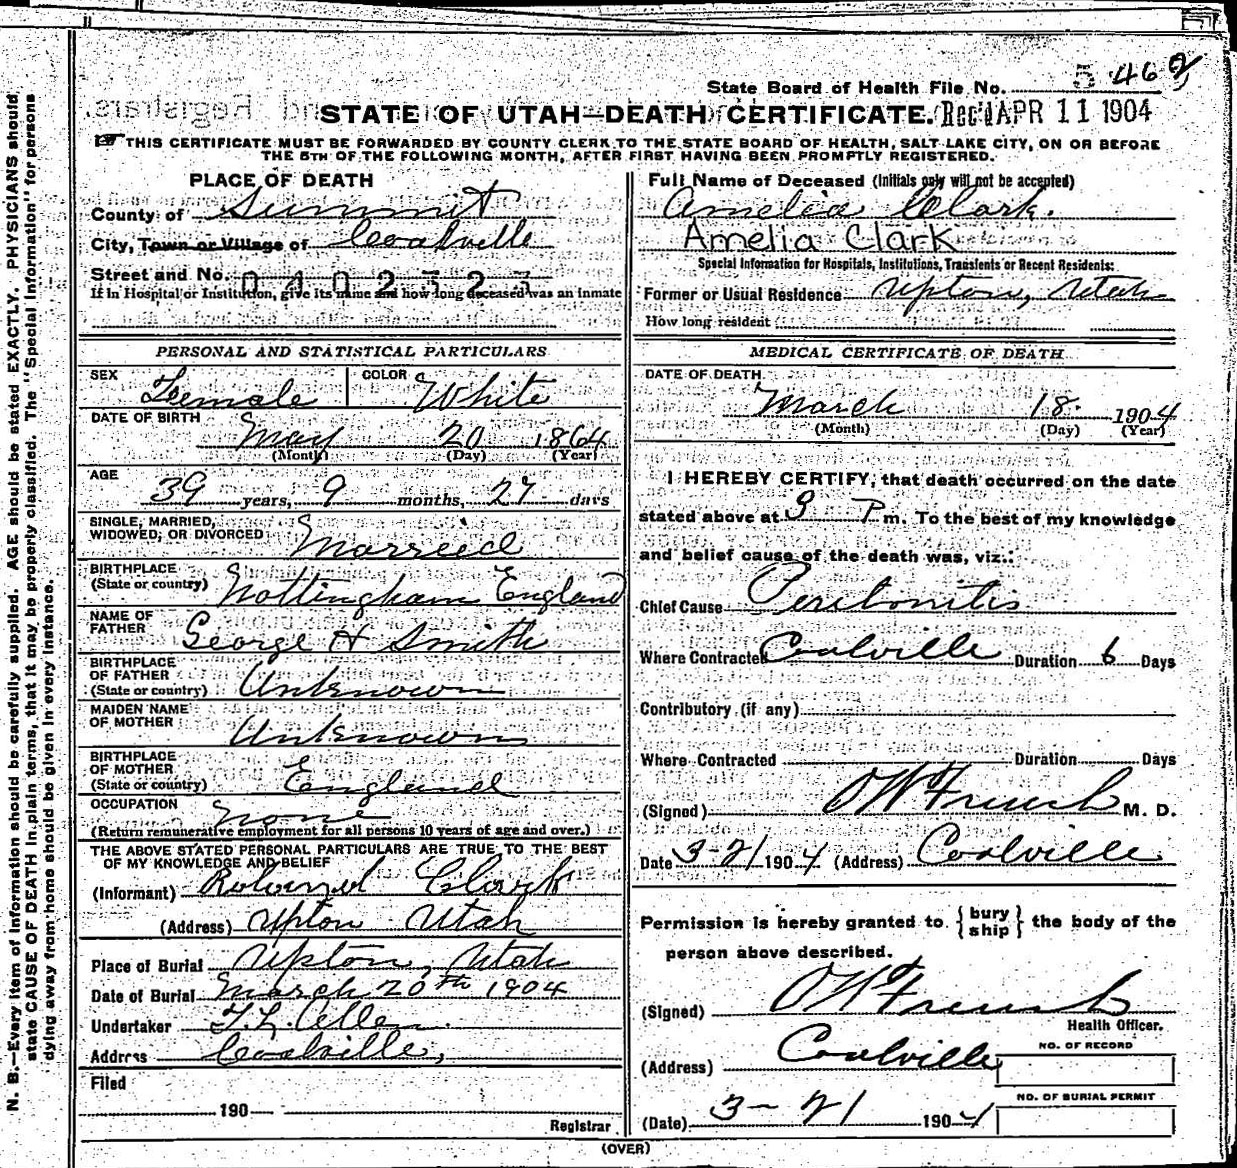 N. B.—Every item of information should be carefully supplied. AGE should be stated EXACTLY. PHYSICIANS should
state CAUSE OF DEATH in plain terms, that it may be properly classified. The "Special Information" for persons
dying away from home should be given in every instance.
State Board of Health File No. 5 462
STATE OF UTAH—DEATH CERTIFICATE. Rec'd APR 11 1904
THIS CERTIFICATE MUST BE FORWARDED BY COUNTY CLERK TO THE STATE BOARD OF HEALTH, SALT LAKE CITY, ON OR BEFORE
THE 5TH OF THE FOLLOWING MONTH, AFTER FIRST HAVING BEEN PROMPTLY REGISTERED.
PLACE OF DEATH
County of Summit
City, Town or Village of Coalville
Street and No. 0402323
If in Hospital or Institution, give its name and how long deceased was an inmate
PERSONAL AND STATISTICAL PARTICULARS
SEX Female COLOR White
DATE OF BIRTH
May 20 1864
(Month) (Day) (Year)
AGE
39 years, 9 months, 27 days
SINGLE, MARRIED,
WIDOWED, OR DIVORCED Married
BIRTHPLACE
(State or country) Nottingham England
NAME OF
FATHER George H Smith
BIRTHPLACE
OF FATHER
(State or country) Unknown
MAIDEN NAME
OF MOTHER Unknown
BIRTHPLACE
OF MOTHER
(State or country) England
OCCUPATION None
(Return remunerative employment for all persons 10 years of age and over.)
THE ABOVE STATED PERSONAL PARTICULARS ARE TRUE TO THE BEST
OF MY KNOWLEDGE AND BELIEF
(Informant) Roland Clark
(Address) Upton Utah
Place of Burial Upton, Utah
Date of Burial March 20th 1904
Undertaker T. L. Allen.
Address Coalville,
Filed
190
Registrar
Full Name of Deceased (Initials only will not be accepted)
Amelia Clark.
Amelia Clark
Special Information for Hospitals, Institutions, Transients or Recent Residents:
Former or Usual Residence Upton, Utah
How long resident
MEDICAL CERTIFICATE OF DEATH
DATE OF DEATH
March 18. 1904
(Month) (Day) (Year)
I HEREBY CERTIFY, that death occurred on the date
stated above at 9 P m. To the best of my knowledge
and belief cause of the death was, viz.:
Chief Cause Peretonitis
Where Contracted Coalville Duration 6 Days
Contributory (if any)
Where Contracted Duration Days
(Signed) M. D.
Date 3-21 1904 (Address) Coalville
Permission is hereby granted to { bury ship } the body of the
person above described.
(Signed)
Health Officer.
(Address) Coalville
NO. OF RECORD
NO. OF BURIAL PERMIT
(Date) 3-21 1904
(OVER)